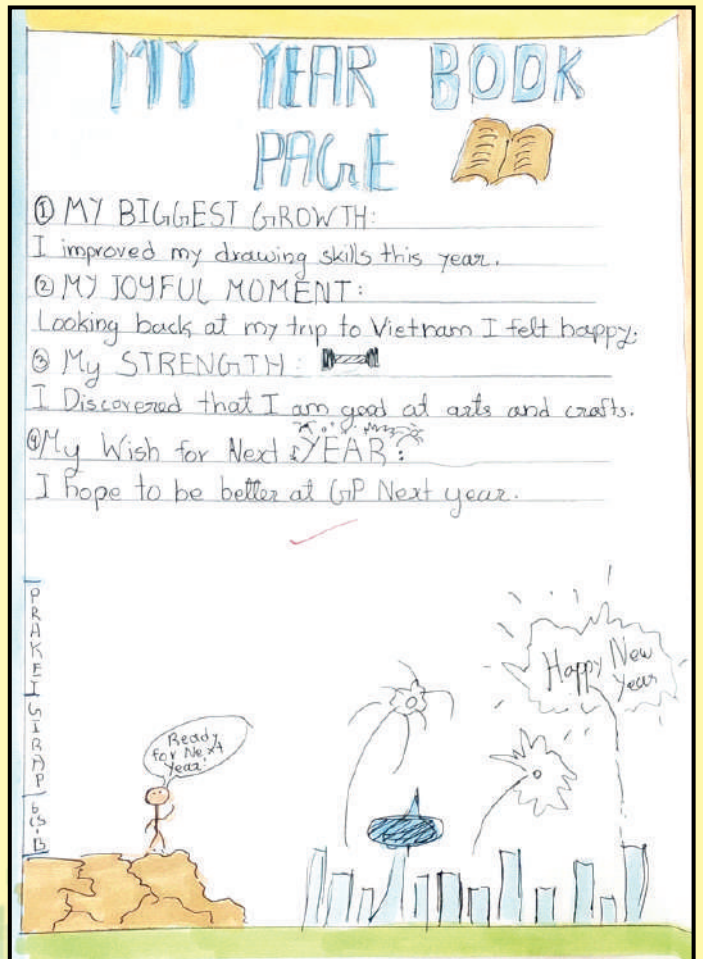 MY YEAR BOOK
PAGE
① MY BIGGEST GROWTH:
I improved my drawing skills this year.
② MY JOYFUL MOMENT:
Looking back at my trip to Vietnam I felt happy.
③ My STRENGTH:
I Discovered that I am good at arts and crafts.
④ My Wish for Next YEAR:
I hope to be better at GP Next year.
Happy New
Year
Ready
for Next
Year!